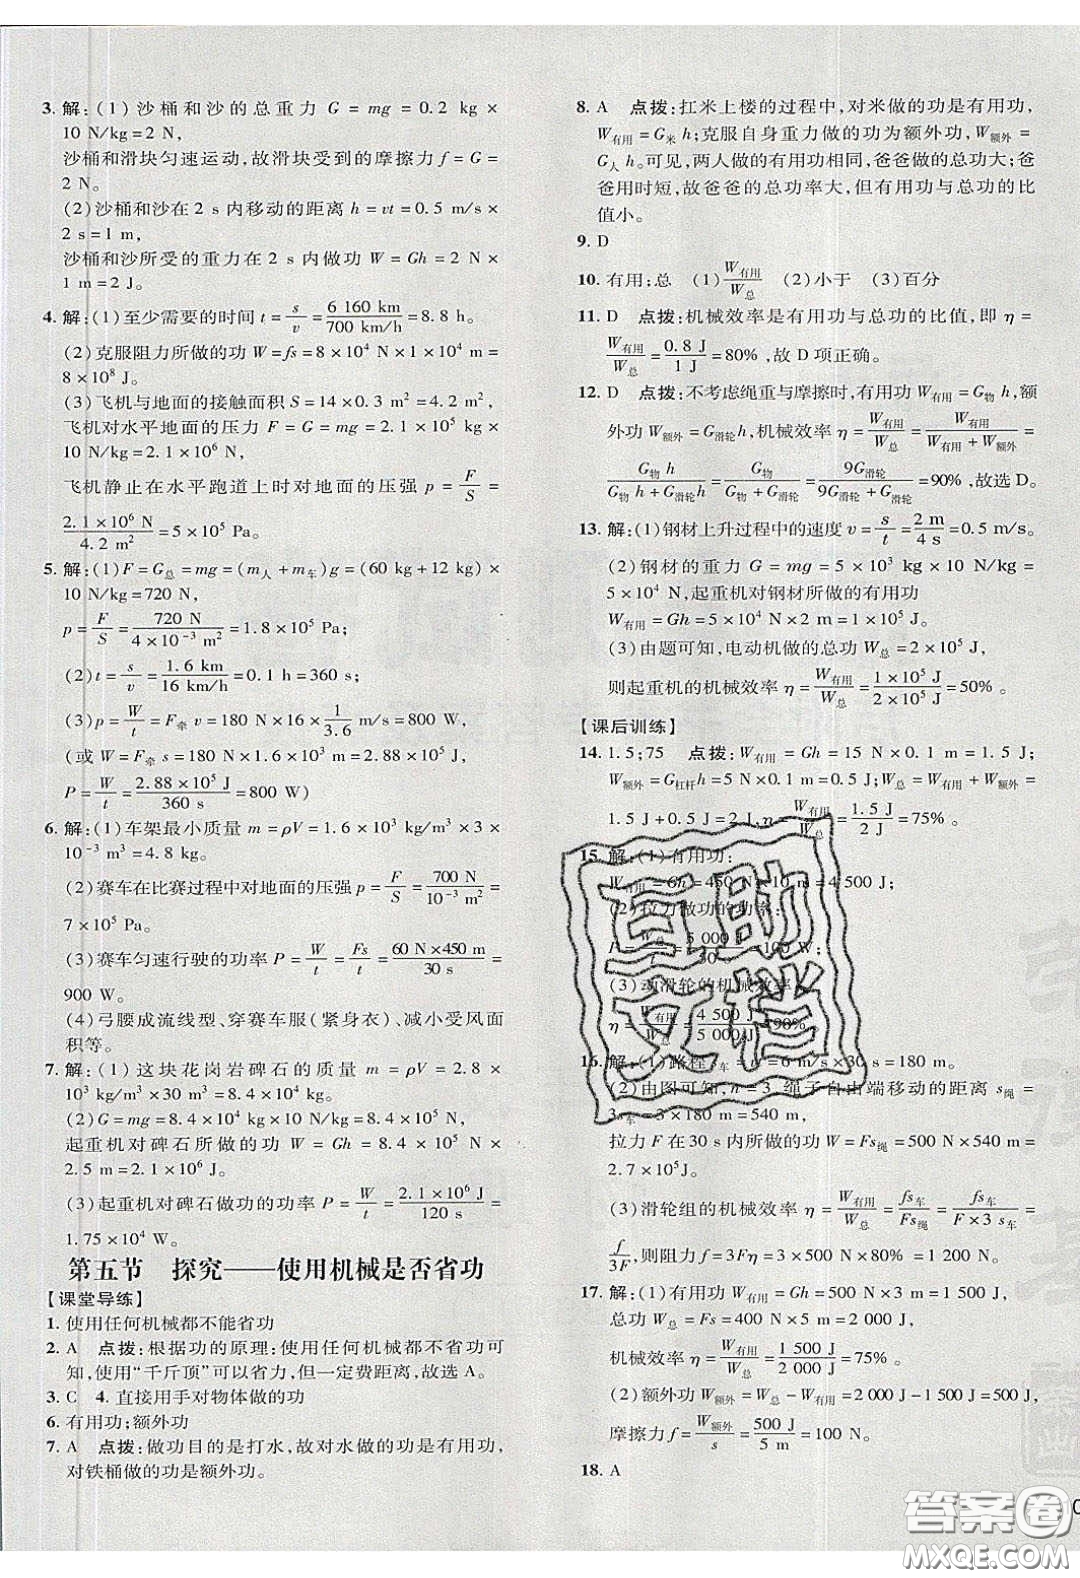 3. 解:(1)沙桶和沙的总重力 G = mg = 0.2 kg ×
10 N/kg = 2 N,
沙桶和滑块匀速运动,故滑块受到的摩擦力 f = G =
2 N。
(2)沙桶和沙在 2 s 内移动的距离 h = vt = 0.5 m/s
× 2 s = 1 m,
沙桶和沙所受的重力在 2 s 内做功 W = Gh = 2 N ×
1 m = 2 J。
4. 解:(1)至少需要的时间 t = s/v = 6 160 km/700 km/h = 8.8 h。
(2)克服阻力所做的功 W = fs = 8×10⁴ N×1×10⁴ m =
8×10⁸ J。
(3)飞机与地面的接触面积 S = 14×0.3 m² = 4.2 m²,
飞机对水平地面的压力 F = G = mg = 2.1×10⁵ kg×
10 N/kg = 2.1×10⁶ N,
飞机静止在水平跑道上时对地面的压强 p = F/S =
2.1×10⁶ N/4.2 m² = 5×10⁵ Pa。
5. 解:(1)F = G总 = mg = (m人 + m车)g = (60 kg + 12 kg) ×
10 N/kg = 720 N,
p = F/S = 720 N/4×10⁻³ m² = 1.8×10⁵ Pa;
(2)t = s/v = 1.6 km/16 km/h = 0.1 h = 360 s;
(3)p = W/t = F牵 v = 180 N×16×1/3.6 m/s = 800 W,
(或 W = F牵 s = 180 N×1.6×10³ m = 2.88×10⁵ J,
P = W/t = 2.88×10⁵ J/360 s = 800 W)
6. 解:(1)车架最小质量 m = ρV = 1.6×10³ kg/m³×3×
10⁻³ m³ = 4.8 kg。
(2)赛车在比赛过程中对地面的压强 p = F/S = 700 N/10⁻³ m² =
7×10⁵ Pa。
(3)赛车匀速行驶的功率 P = W/t = Fs/t = 60 N×450 m/30 s =
900 W。
(4)弓腰成流线型、穿赛车服(紧身衣)、减小受风面
积等。
7. 解:(1)这块花岗岩碑石的质量 m = ρV = 2.8×
10³ kg/m³×30 m³ = 8.4×10⁴ kg。
(2)G = mg = 8.4×10⁴ kg×10 N/kg = 8.4×10⁵ N,
起重机对碑石所做的功 W = Gh = 8.4×10⁵ N×
2.5 m = 2.1×10⁶ J。
(3)起重机对碑石做功的功率 P = W/t = 2.1×10⁶ J/120 s =
1.75×10⁴ W。
第五节 探究——使用机械是否省功
【课堂导练】
1. 使用任何机械都不能省功
2. A 点拨:根据功的原理:使用任何机械都不省功可
知,使用“千斤顶”可以省力,但一定费距离,故选 A。
3. C 4. 直接用手对物体做的功
6. 有用功;额外功
7. A 点拨:做功目的是打水,故对水做的功是有用功,
对铁桶做的功是额外功。
8. A 点拨:扛米上楼的过程中,对米做的功是有用功,
W有用 = G米 h;克服自身重力做的功为额外功,W额外 =
G人 h。可见,两人做的有用功相同,爸爸做的总功大;爸
爸用时短,故爸爸的总功率大,但有用功与总功的比
值小。
9. D
10. 有用;总 (1)W有用/W总 (2)小于 (3)百分
11. D 点拨:机械效率是有用功与总功的比值,即 η =
W有用/W总 = 0.8 J/1 J = 80%,故 D 项正确。
12. D 点拨:不考虑绳重与摩擦时,有用功 W有用 = G物 h,额
外功 W额外 = G滑轮h,机械效率 η = W有用/W总 = W有用/W有用 + W额外 =
G物 h/G物 h + G滑轮h = G物/G物 + G滑轮 = 9G滑轮/9G滑轮 + G滑轮 = 90%,故选 D。
13. 解:(1)钢材上升过程中的速度 v = s/t = 2 m/4 s = 0.5 m/s。
(2)钢材的重力 G = mg = 5×10³ kg×10 N/kg =
5×10⁴ N,起重机对钢材所做的有用功
W有用 = Gh = 5×10⁴ N×2 m = 1×10⁵ J。
(3)由题可知,电动机做的总功 W总 = 2×10⁵ J,
则起重机的机械效率 η = W有用/W总 = 1×10⁵ J/2×10⁵ J = 50%。
【课后训练】
14. 1.5;75 点拨:W有用 = Gh = 15 N×0.1 m = 1.5 J;
W额外 = G杠杆h = 5 N×0.1 m = 0.5 J;W总 = W有用 + W额外 =
1.5 J + 0.5 J = 2 J,η = W有用/W总 = 1.5 J/2 J = 75%。
15. 解:(1)有用功:
W有用 = Gh = 450 N×10 m = 4 500 J;
(2)拉力做功的功率:
P = W总/t = 5 000 J/30 s = 100 W;
(3)动滑轮的机械效率
η = W有用/W总 = 4 500 J/5 000 J = 90%
16. 解:(1)路程 s车 = 6 m/s×30 s = 180 m。
(2)由图可知,n = 3,绳子自由端移动的距离 s绳 =
3s车 = 3×180 m = 540 m,
拉力 F 在 30 s 内所做的功 W = Fs绳 = 500 N×540 m =
2.7×10⁵J。
(3)滑轮组的机械效率 η = W有用/W总 = fs车/Fs绳 = fs车/F×3 s车 =
f/3F,则阻力 f = 3Fη = 3×500 N×80% = 1 200 N。
17. 解:(1)有用功 W有用 = Gh = 500 N×3 m = 1 500 J,
总功 W总 = Fs = 400 N×5 m = 2 000 J,
机械效率 η = W有用/W总 = 1 500 J/2 000 J = 75%。
(2)额外功 W额外 = W总 − W有用 = 2 000 J − 1 500 J = 500 J,
摩擦力 f = W额外/s = 500 J/5 m = 100 N。
18. A
互助
文档
答案圈
MXQE.COM